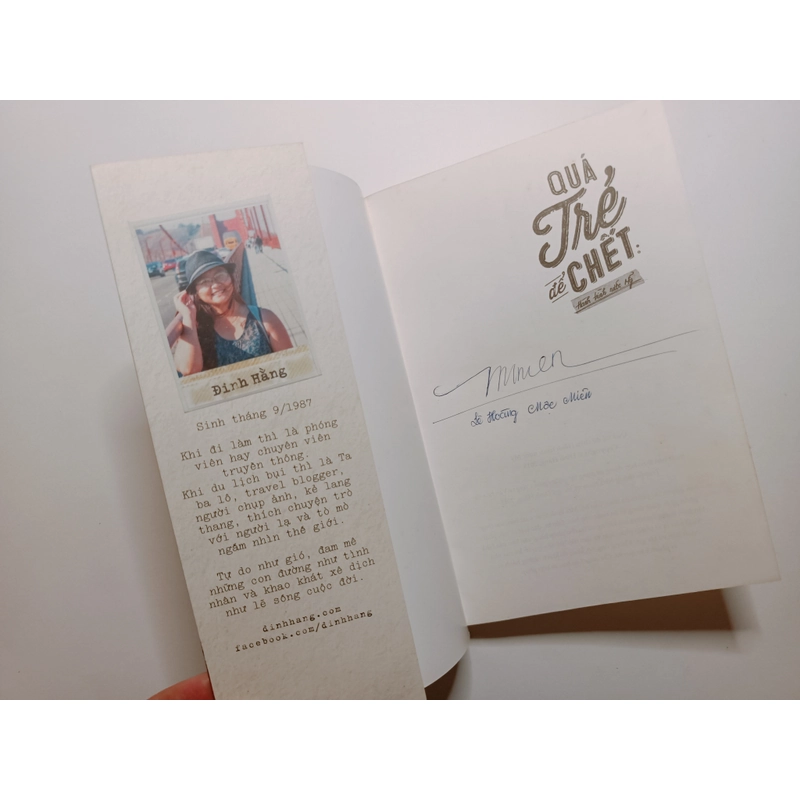 Đinh Hằng
Sinh tháng 9/1987
Khi đi làm thì là phóng
viên hay chuyên viên
truyền thông.
Khi du lịch bụi thì là Ta
ba lô, travel blogger,
người chụp ảnh, kẻ lang
thang, thích chuyện trò
với người lạ và tò mò
ngắm nhìn thế giới.
Tự do như gió, đam mê
những con đường như tình
nhân và khao khát xê dịch
như lẽ sống cuộc đời.
dinhhang.com
facebook.com/dinhhang
QUÁ
Trẻ
để CHẾT:
hành trình nước Mỹ...
Mmien
Lê Hoàng Mộc Miên